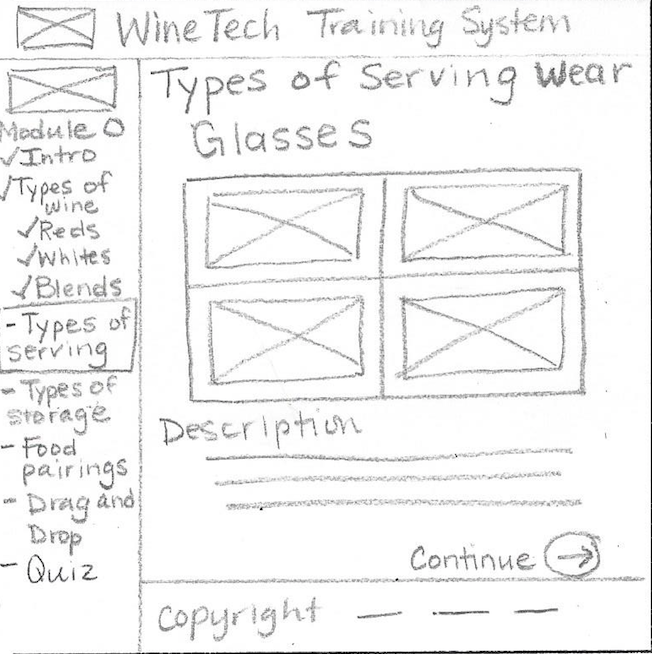 WineTech Training System
Module 0
✓Intro
✓Types of
wine
✓Reds
✓Whites
✓Blends
- Types of
serving
- Types of
storage
- Food
pairings
- Drag and
Drop
- Quiz
Types of Serving Wear
Glasses
Description
Continue →
Copyright